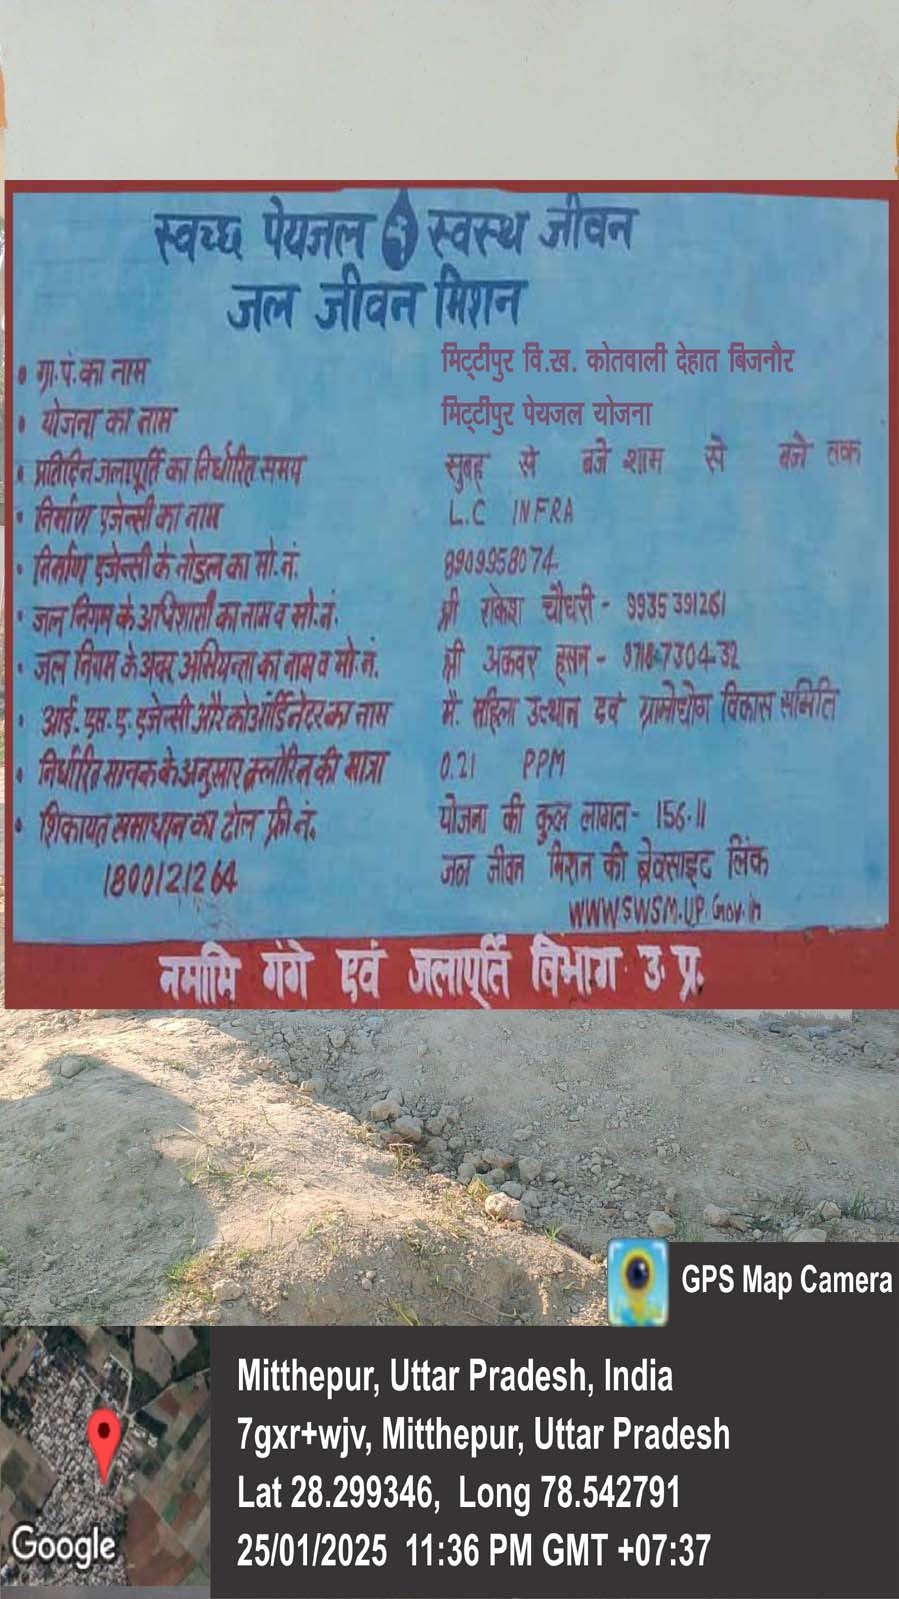 स्वच्छ पेयजल स्वस्थ जीवन
जल जीवन मिशन
• ग्रा.पं.का नाम मिट्टीपुर वि.ख. कोतवाली देहात बिजनौर
• योजना का नाम मिट्टीपुर पेयजल योजना
• प्रतिदिन जलापूर्ति का निर्धारित समय सुबह से बजे शाम से बजे तक
• निर्माण एजेन्सी का नाम L.C INFRA
• निर्माण एजेन्सी के नोडल का मो.नं. 8909958074
• जल निगम के अधिशासी का नाम व मो.नं. श्री राकेश चौधरी - 9935391261
• जल निगम के अवर अभियन्ता का नाम व मो.नं. श्री अकबर हसन -
• आई.एस.ए. एजेन्सी और कोऑर्डिनेटर का नाम मै. महिला उत्थान एवं ग्रामोद्योग विकास समिति
• निर्धारित मानक के अनुसार क्लोरिन की मात्रा 0.21 PPM
• शिकायत समाधान का टोल फ्री नं. योजना की कुल लागत - 156.11
1800121264 जल जीवन मिशन की बेवसाइट लिंक
WWW.SWSM.UP.Gov.in
नमामि गंगे एवं जलापूर्ति विभाग उ.प्र.
GPS Map Camera
Mitthepur, Uttar Pradesh, India
7gxr+wjv, Mitthepur, Uttar Pradesh
Lat 28.299346, Long 78.542791
25/01/2025 11:36 PM GMT +07:37
Google